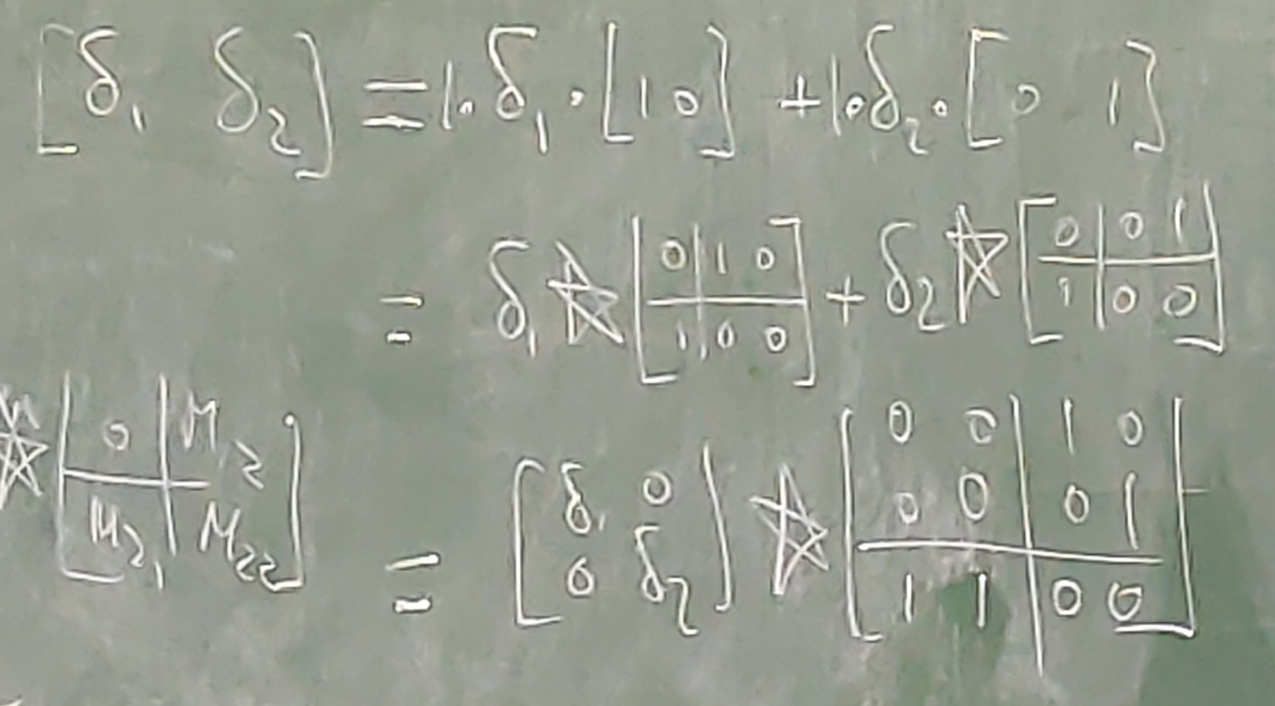 [δ₁ δ₂] = 1·δ₁·[1 0] + 1·δ₂·[0 1]
= δ₁ ☆ [0 | 1 0
1 | 0 0] + δ₂ ☆ [0 | 0 1
1 | 0 0]
☆ [0 | M₁₂
M₂₁ | M₂₂]
= [δ₁ 0
0 δ₂] ☆ [0 0 | 1 0
0 0 | 0 1
1 1 | 0 0]